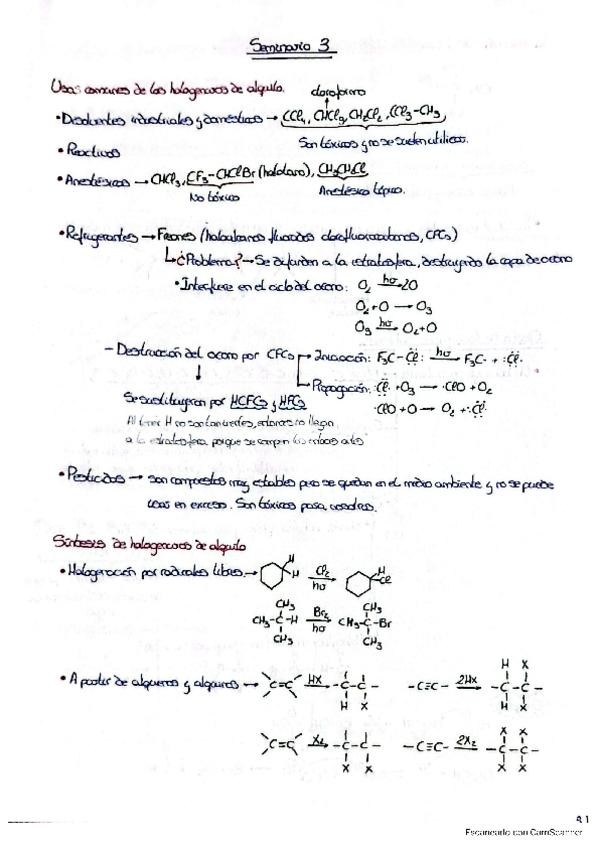 Seminario 3
Usos comunes de los halogenuros de alquilo.
cloroformo
• Disolventes industriales y domésticos → CCl4, CHCl3, CH2Cl2, CCl3-CH3
Son tóxicos y no se suelen utilizar.
• Reactivos
• Anestésicos → CHCl3, CF3-CHClBr (halotano), CH3CH2Cl
No tóxico Anestésico tópico.
• Refrigerantes → Freones (haloalcanos fluorados clorofluorocarbonos, CFCs)
↳ ¿Problema? → Se difunden a la estratosfera, destruyendo la capa de ozono
• Interfiere en el ciclo del ozono: O2 hν→ 2O
O2 + O → O3
O3 hν→ O2 + O
- Destrucción del ozono por CFCs → Iniciación: F3C-Cl: hν→ F3C· + :Cl·
Propagación: ·Cl + O3 → ·ClO + O2
Se sustituyeron por HCFCs y HFCs
·ClO + O → O2 + ·Cl:
Al tener H no son tan inertes, entonces no llegan
a la estratosfera porque se rompen los enlaces antes
• Pesticidas → son compuestos muy estables pero se quedan en el medio ambiente y no se puede
usar en exceso. Son tóxicos para nosotros.
Síntesis de halogenuros de alquilo
• Halogenación por radicales libres → H H Cl2 hν→ H Cl
CH3 CH3
CH3-C-H Br2 hν→ CH3-C-Br
CH3 CH3
• A partir de alquenos y alquinos → C=C HX→ -C-C- -C≡C- 2HX→ -C-C-
H X H X H X
C=C X2→ -C-C- -C≡C- 2X2→ -C-C-
X X X X X X
Escaneado con CamScanner